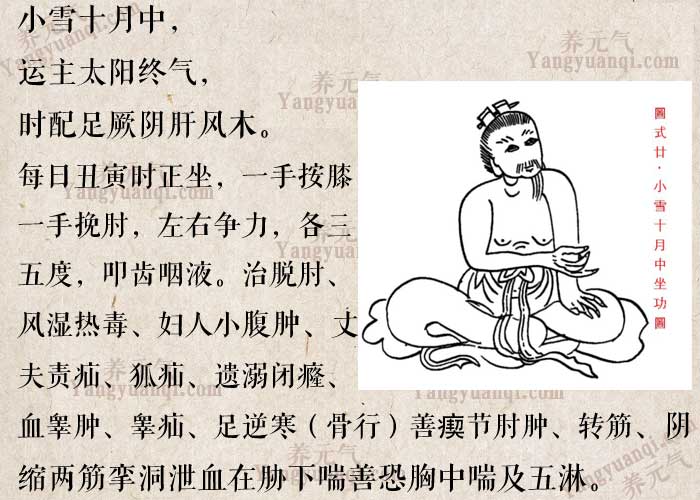 小雪十月中，
运主太阳终气，
时配足厥阴肝风木。
每日丑寅时正坐，一手按膝
一手挽肘，左右争力，各三
五度，叩齿咽液。治脱肘、
风湿热毒、妇人小腹肿、丈
夫责疝、狐疝、遗溺闭癃、
血睾肿、睾疝、足逆寒（骨行）善瘈节肘肿、转筋、阴
缩两筋挛洞泄血在胁下喘善恐胸中喘及五淋。
圖式廿·小雪十月中坐功圖
养元气
Yangyuanqi.com